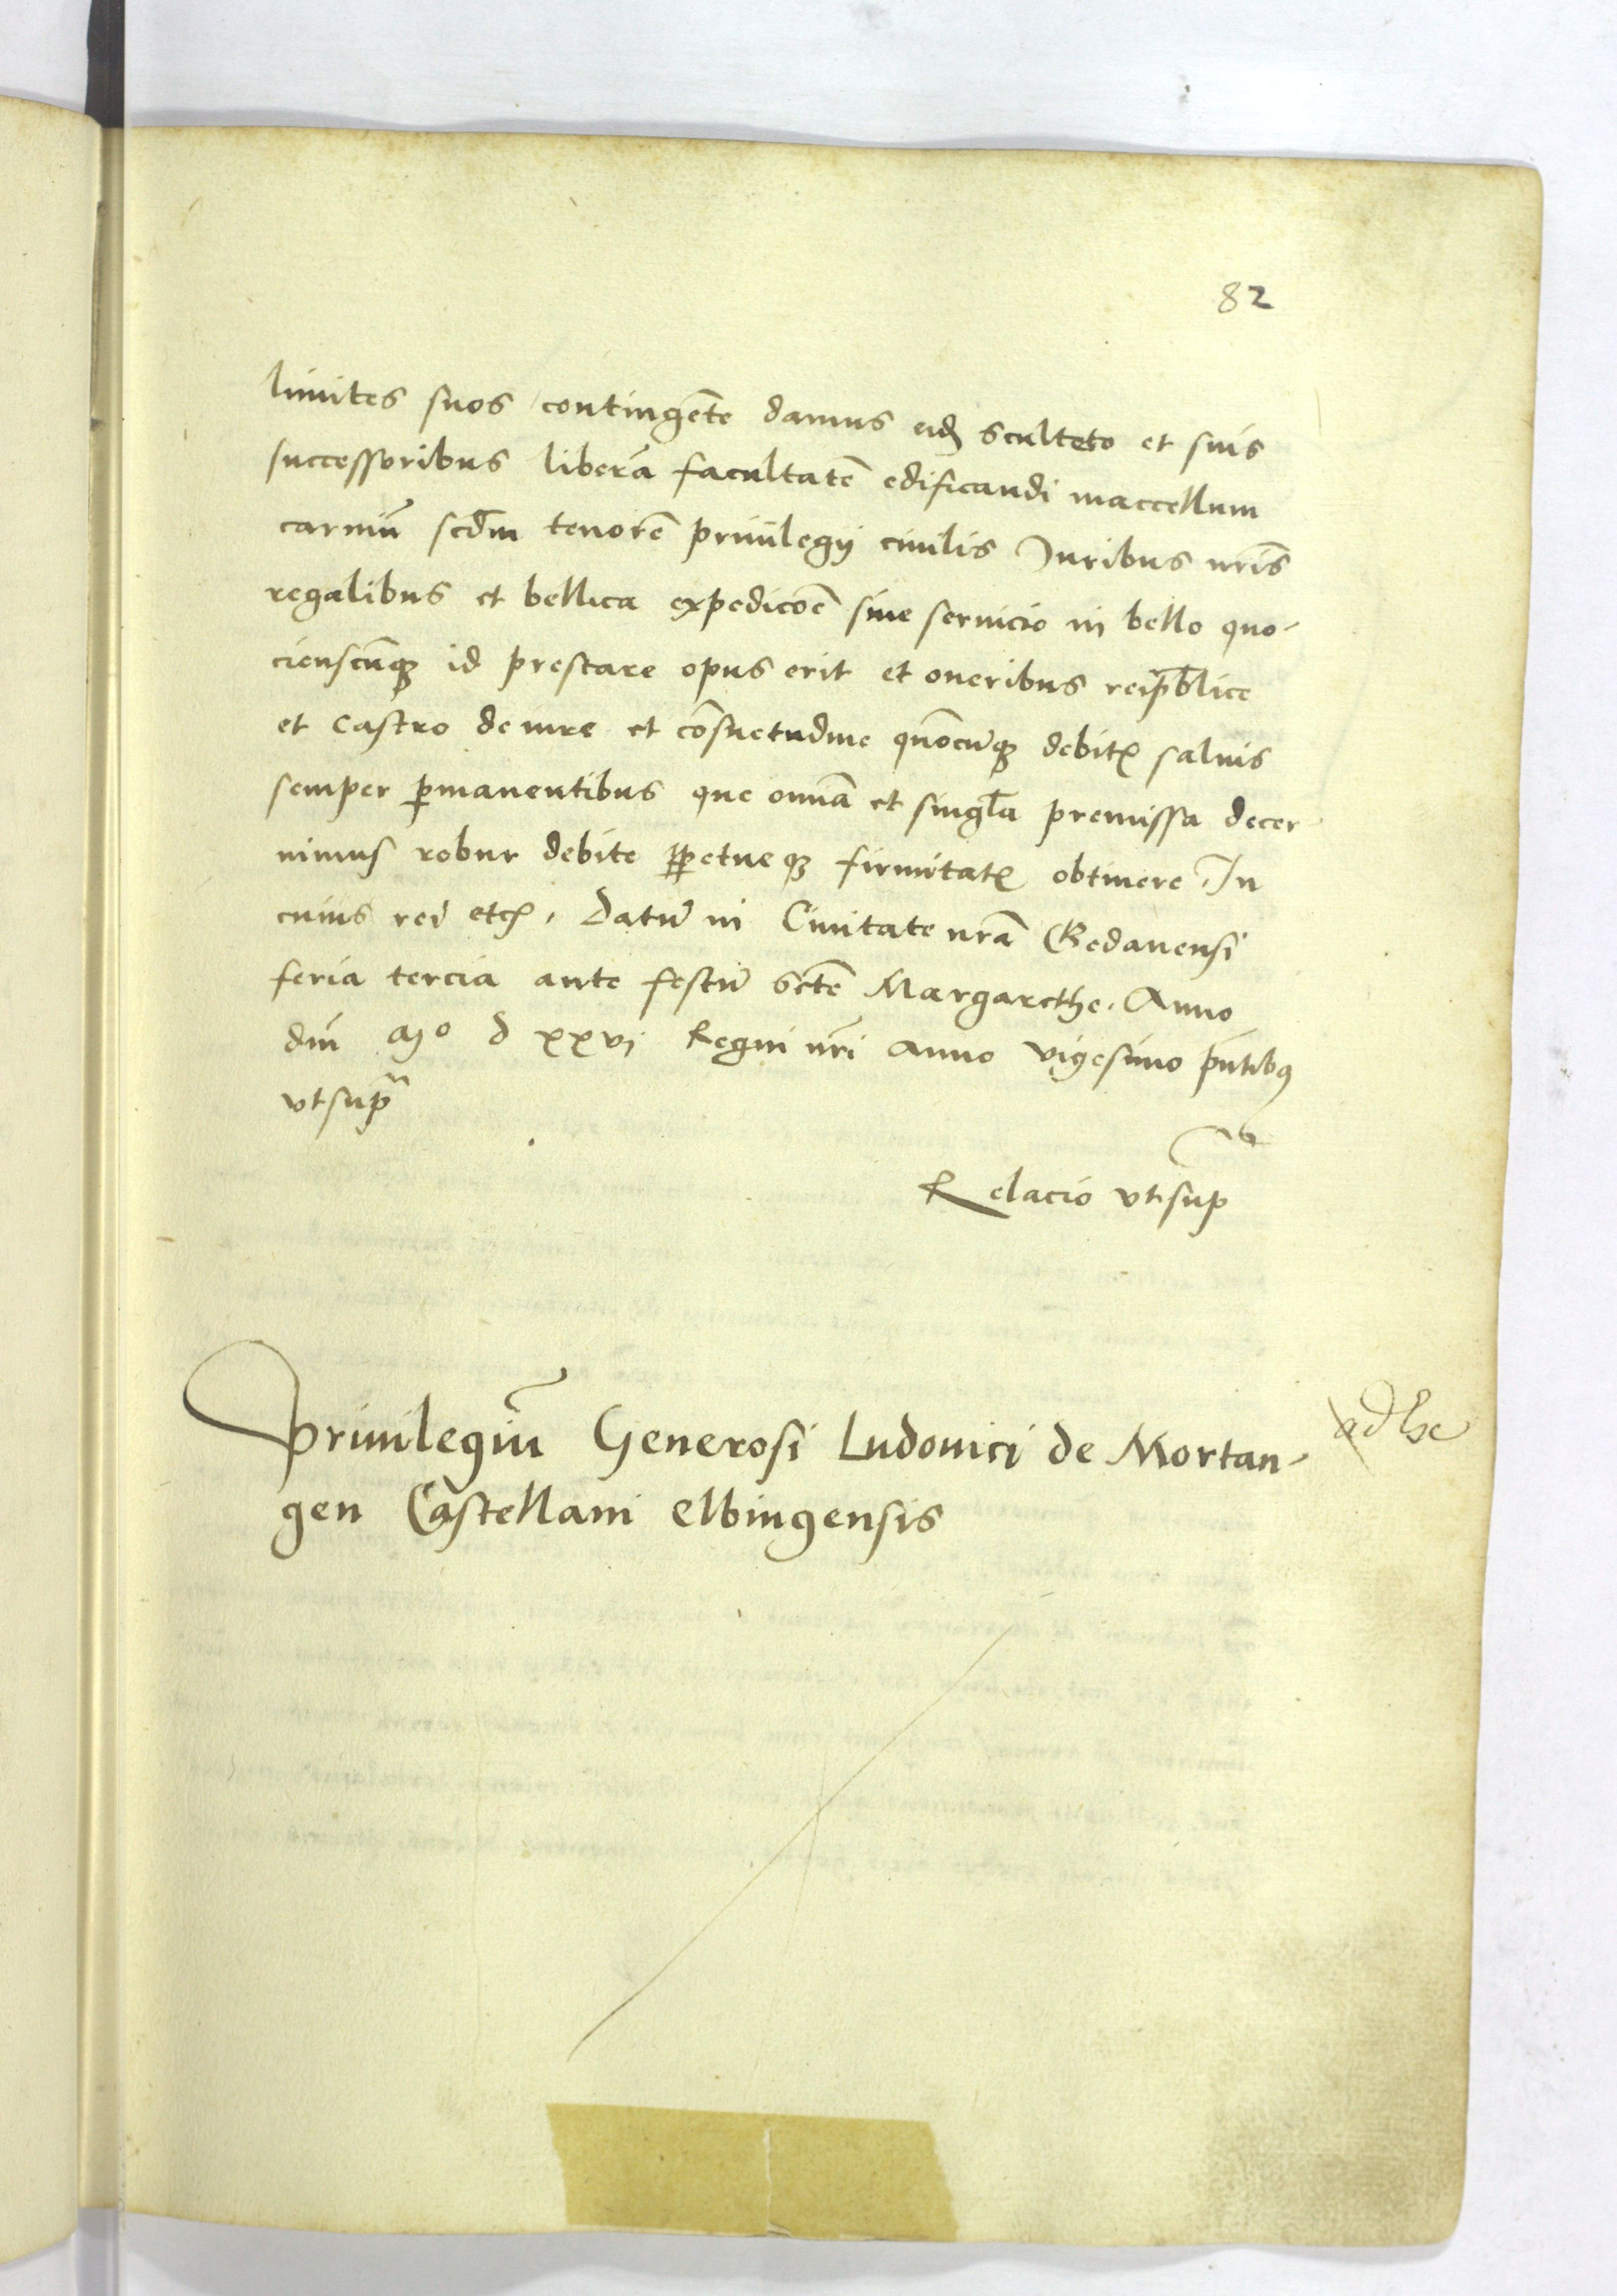 82
limites suos contingēte damus eidē sculteto et suis
successoribus liberā facultatē edificandi maccellum
carniū scdm̄ tenorē priuilegij ciuilis Juribus nr̄is
regalibus et bellica expedicōe siue seruicio in bello quo-
cienscūq₃ id prestare opus erit et oneribus reipb̄lice
et castro de iure et cōsuetudine quōcūq₃ debitꝭ saluis
semper ꝑmanentibus que omīa et singl̄a premissa decer-
nimus robur debite ꝑpetueq₃ firmitatꝭ obtinere In
cuius rei etcꝭ. Datū in Ciuitate nr̄a Gedanensi
feria tercia ante festū sctē Margarethe. Anno
dni Mo d xxvi Regni nr̄i anno vigesimo pn̄tibꝰ
vt supᵃ
Relacio vt supᵃ
Priuilegiū Generosi Ludouici de Mortan-
gen Castellani Elbingensis